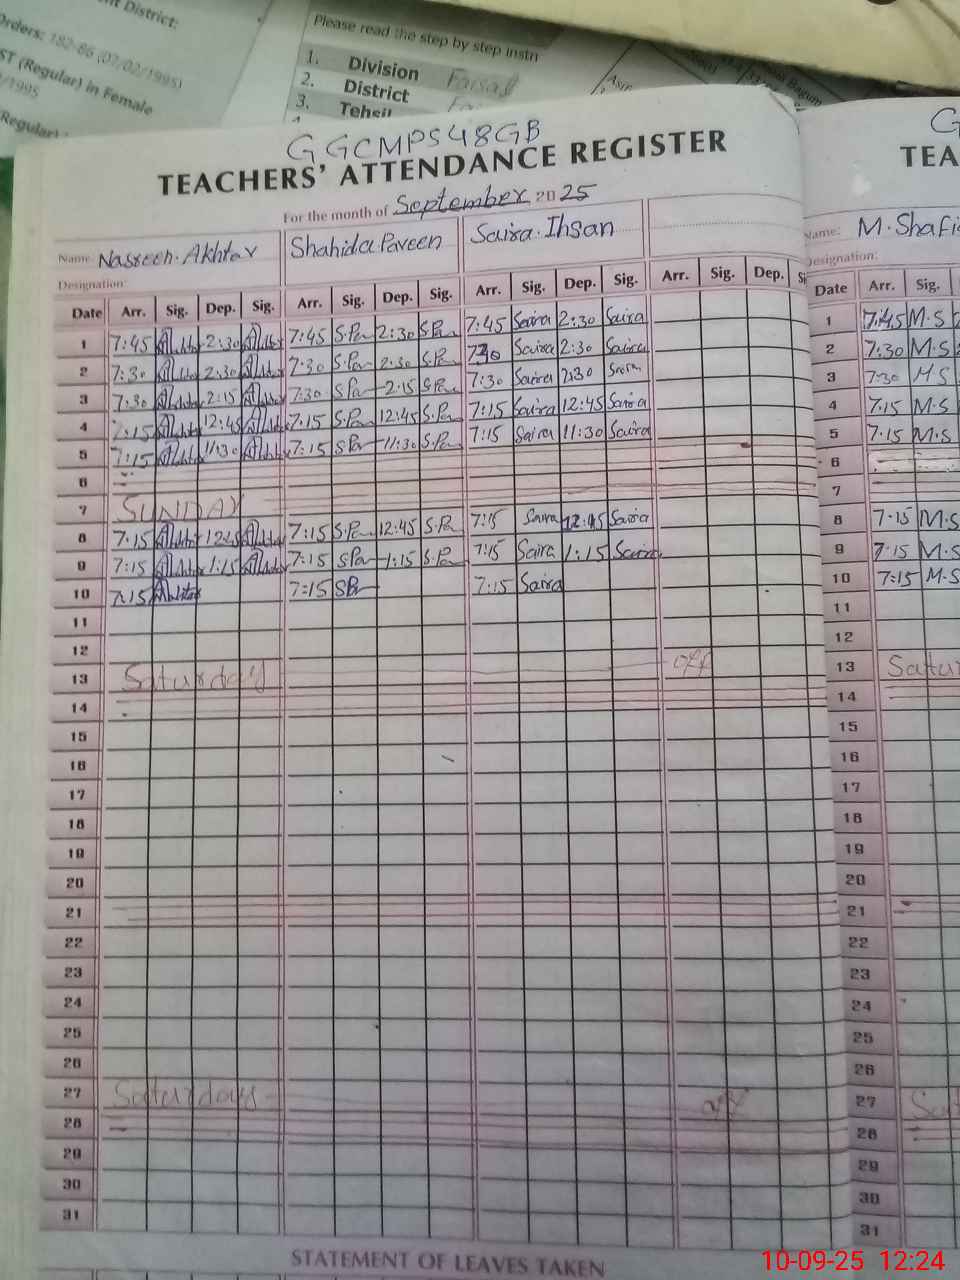 t District:
Orders: 182-86 (02/02/1995)
ST (Regular) in Female
/1995
Regular)
Please read the step by step instn
1. Division Faisal
2. District Fa
3. Tehsil
G GCMPS 48GB
TEACHERS' ATTENDANCE REGISTER
For the month of September 2025
Name: Nasreen Akhtar Shahida Paveen Saira Ihsan
Designation:
Date Arr. Sig. Dep. Sig. Arr. Sig. Dep. Sig. Arr. Sig. Dep. Sig. Arr. Sig. Dep. S
1 7:45 Akhtar 2:30 Akhtar 7:45 S.Pa 2:30 S.Pa 7:45 Saira 2:30 Saira
2 7:30 Akhtar 2:30 Akhtar 7:30 S.Pa 2:30 S.Pa 730 Saira 2:30 Saira
3 7:30 Akhtar 2:15 Akhtar 7:30 S.Pa 2:15 S.Pa 7:30 Saira 2:30 Saira
4 7:15 Akhtar 12:45 Akhtar 7:15 S.Pa 12:45 S.Pa 7:15 Saira 12:45 Saira
5 7:15 Akhtar 11:30 Akhtar 7:15 S.Pa 11:30 S.Pa 7:15 Saira 11:30 Saira
6
7 SUNDAY
8 7:15 Akhtar 1245 Akhtar 7:15 S.Pa 12:45 S.Pa 7:15 Saira 12:45 Saira
9 7:15 Akhtar 1:15 Akhtar 7:15 S.Pa 1:15 S.Pa 7:15 Saira 1:15 Saira
10 7:15 Akhtar 7:15 S.Pa 7:15 Saira
11
12
13 Saturday off
14
15
16
17
18
19
20
21
22
23
24
25
26
27 Saturday off
28
29
30
31
STATEMENT OF LEAVES TAKEN
G
TEA
Name: M.Shafi
Designation:
Date Arr. Sig.
1 7:45 M.S
2 7:30 M.S
3 7:30 M.S
4 7:15 M.S
5 7:15 M.S
6
7
8 7:15 M.S
9 7:15 M.S
10 7:15 M.S
11
12
13 Satur
14
15
16
17
18
19
20
21
22
23
24
25
26
27 Sat
28
29
30
31
10-09-25 12:24